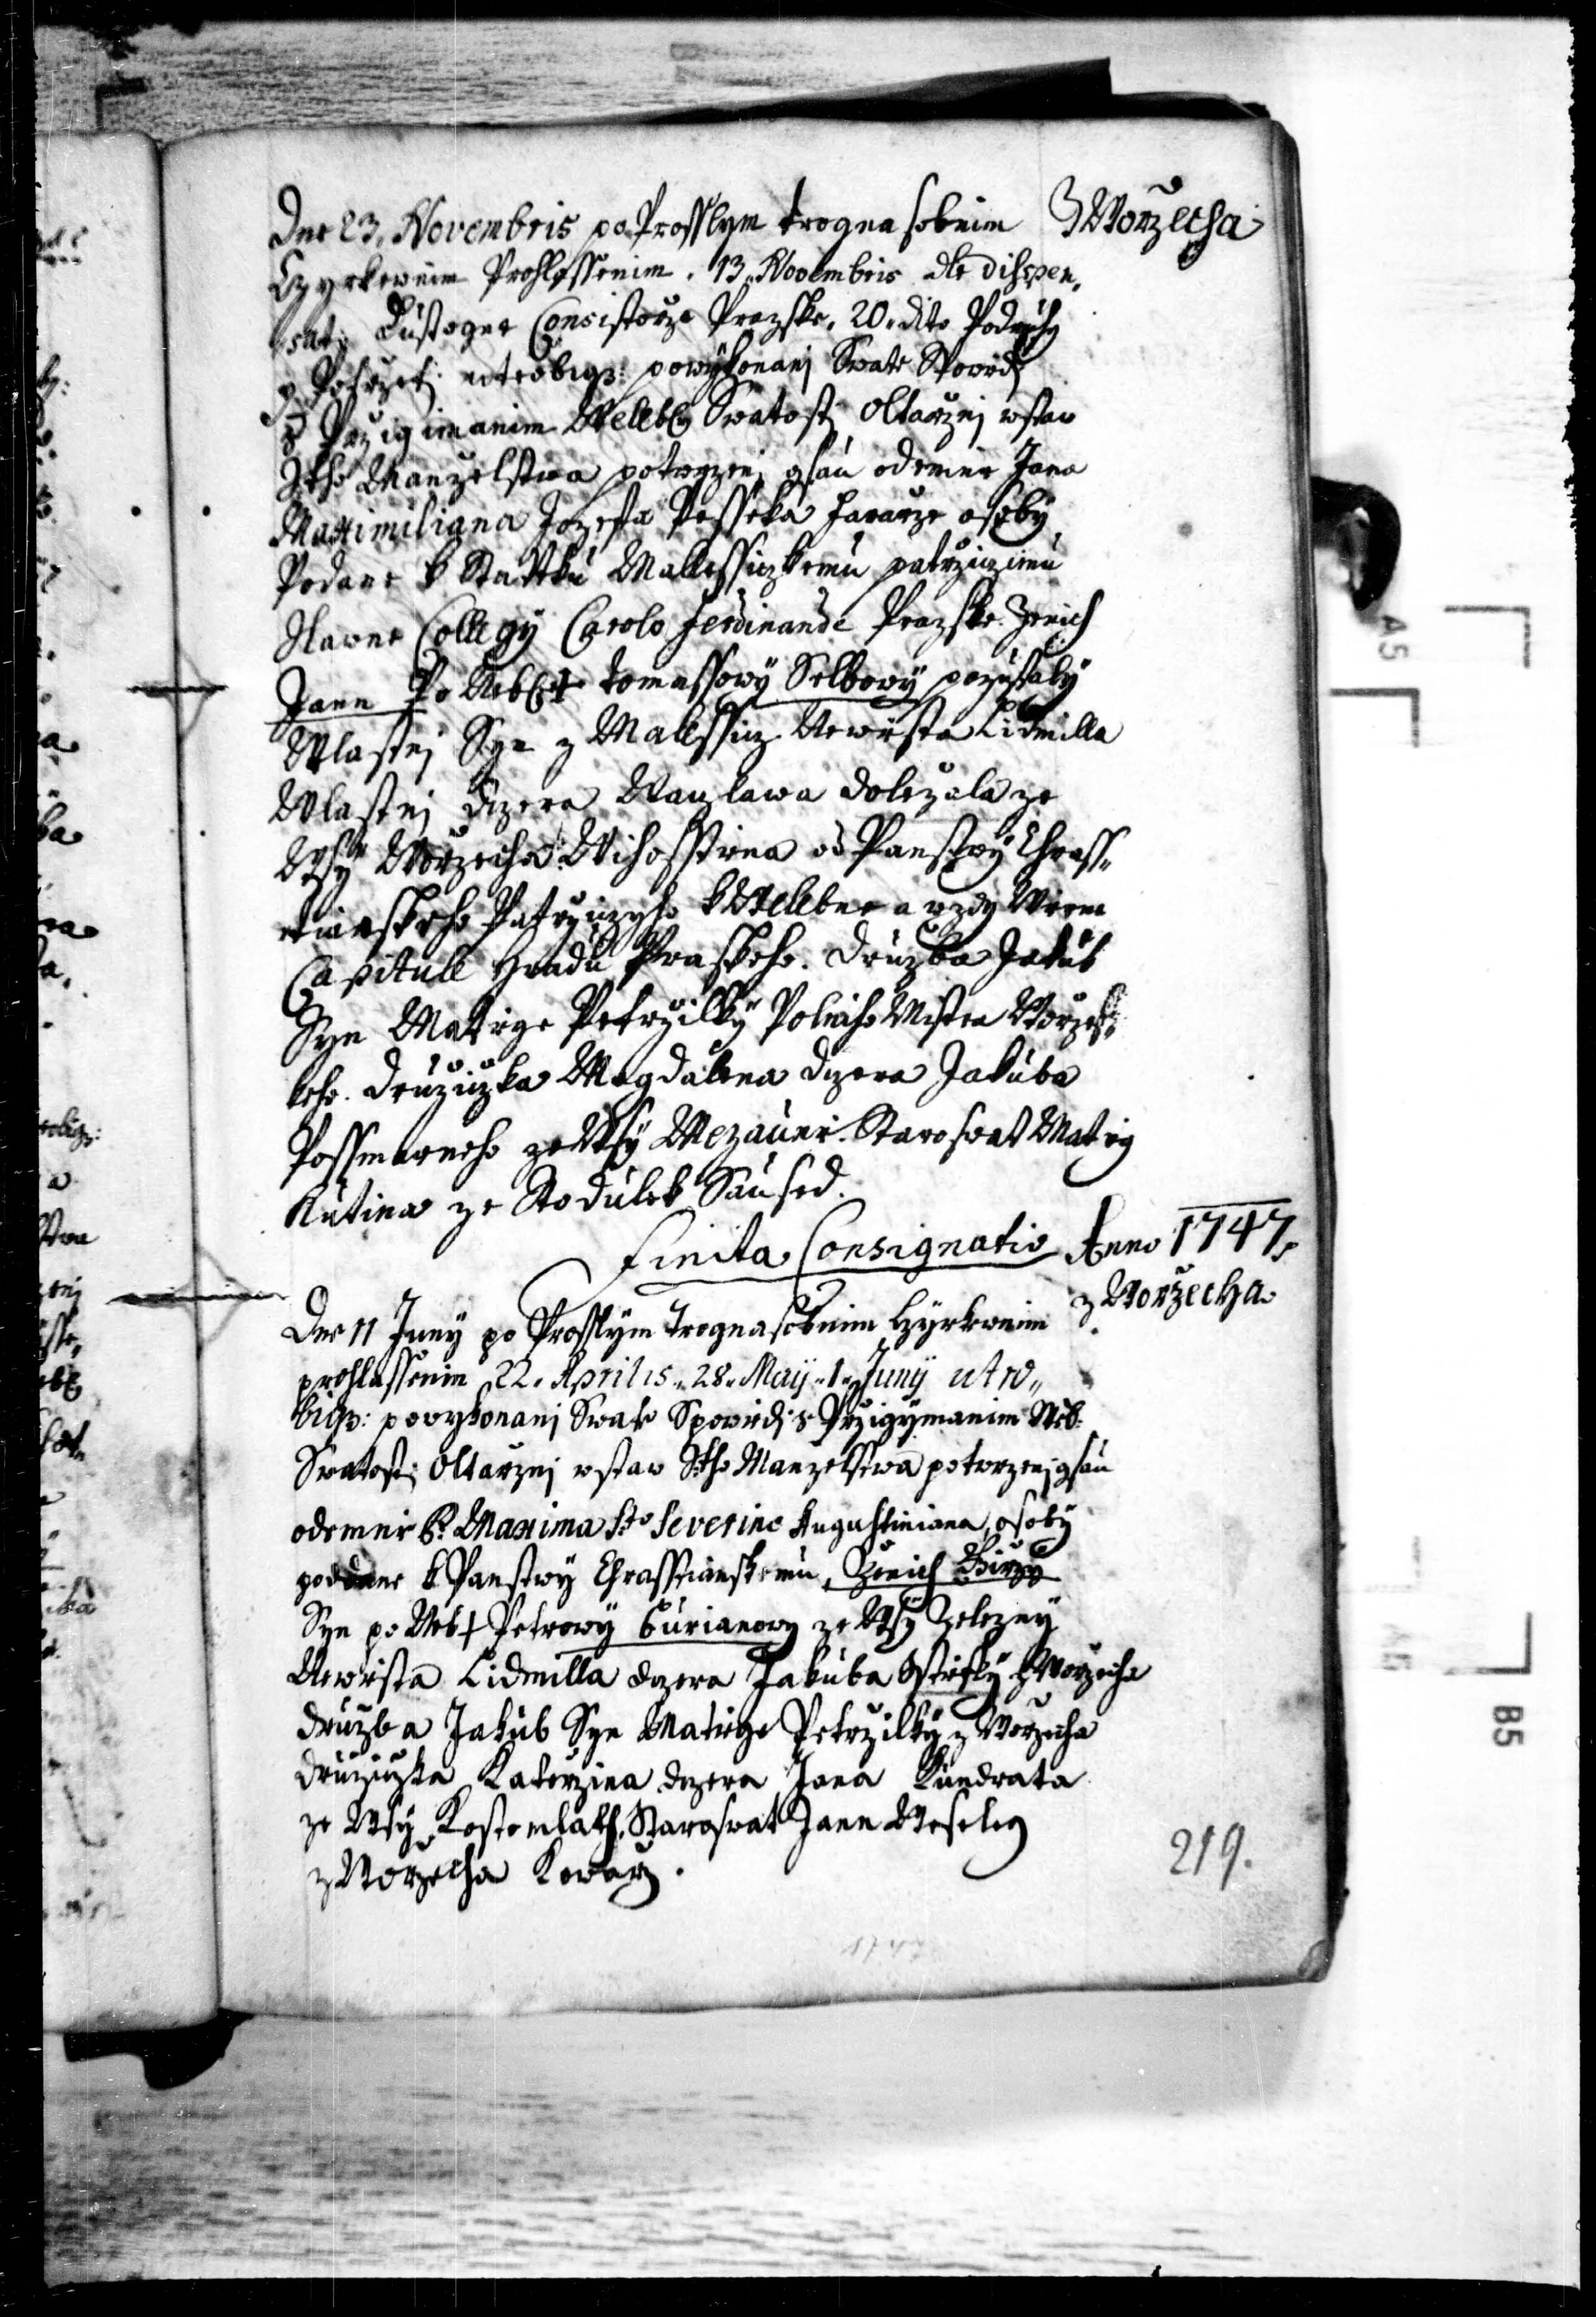 Dne 23. Novembris po Prosslym trogna sobnim
Z Worzecha
Czyrkewnim Prohlassenim. 13. Novembris dle dispen„
sati Dustogne Consistorze Prazske. 20. dito Podruhy
utrobigz: powykonanj Swate Spowidj
s Przigimanim Weleb: Swatosti Oltarznj wstaw
Stho Manzelstwa potwrzenj gsau odemne Jana
Maximiliana Jozefa Pesseka Fararze osoby
Podane k Stattku Malessiczkemu patrziczimu
Slawne Collegy Carolo Ferdinande Prazske. Zenich
Jann Po Neb: † Tomassowy Selbowy pozustaly
Wlastnj Syn z Malessicz. Newiesta Lidmilla
Wlastnj Dczera Waczlawa Dolezala ze
Wsy Worzecha od Panstwy Chrass„
tianskeho Patrziczyho k Welebne a wzdy Wierne
Capitule Hradu Prazskeho. Druzba Jakub
Syn Matiege Petrzilky Polniho Mistra Worzess„
keho. Druziczka Magdalena Dczera Jakuba
Possmurneho ze Wsy Mezauni. Staroswat Matieg
Kutina ze Stodulek Saused.
Finita Consignatio Anno 1747
z Worzecha
Dne 11 Juny po Prosslym Trognasobnim Czyrkwnim
prohlassenim 22. Aprilis. 28. May. 1. Juny utro„
bigz: powykonanj Swate Spowidj s Przigymanim Web:
Swatosti Oltarznj wstaw Stho Manzelstwa potwrzenj gsau
odemne P. Maxima Sto Severino Augustiniana, osoby
poddane k Panstwy Chrasstianskemu, Zenich Girzy
Syn po Neb † Petrowy Burianowy ze Wsy Zelezny
Newiesta Lidmilla dczera Jakuba z Worzecha
druzba Jakub Syn Matiege Petrzilky z Worzecha
druziczka Katerzina dczera Jana Kundrata
ze Wsy Kostomlath. Staroswat Jann Wesely
z Worzecha Kowarz.
219.
1747
A5
A5
B5